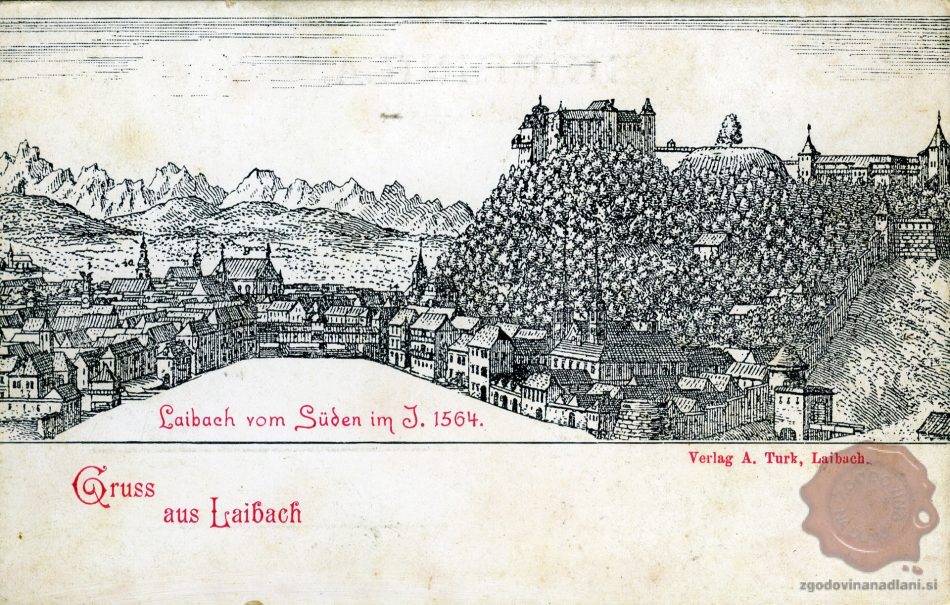 Laibach vom Süden im J. 1564.
Verlag A. Turk, Laibach.
Gruss
aus Laibach
zgodovinanadlani.si